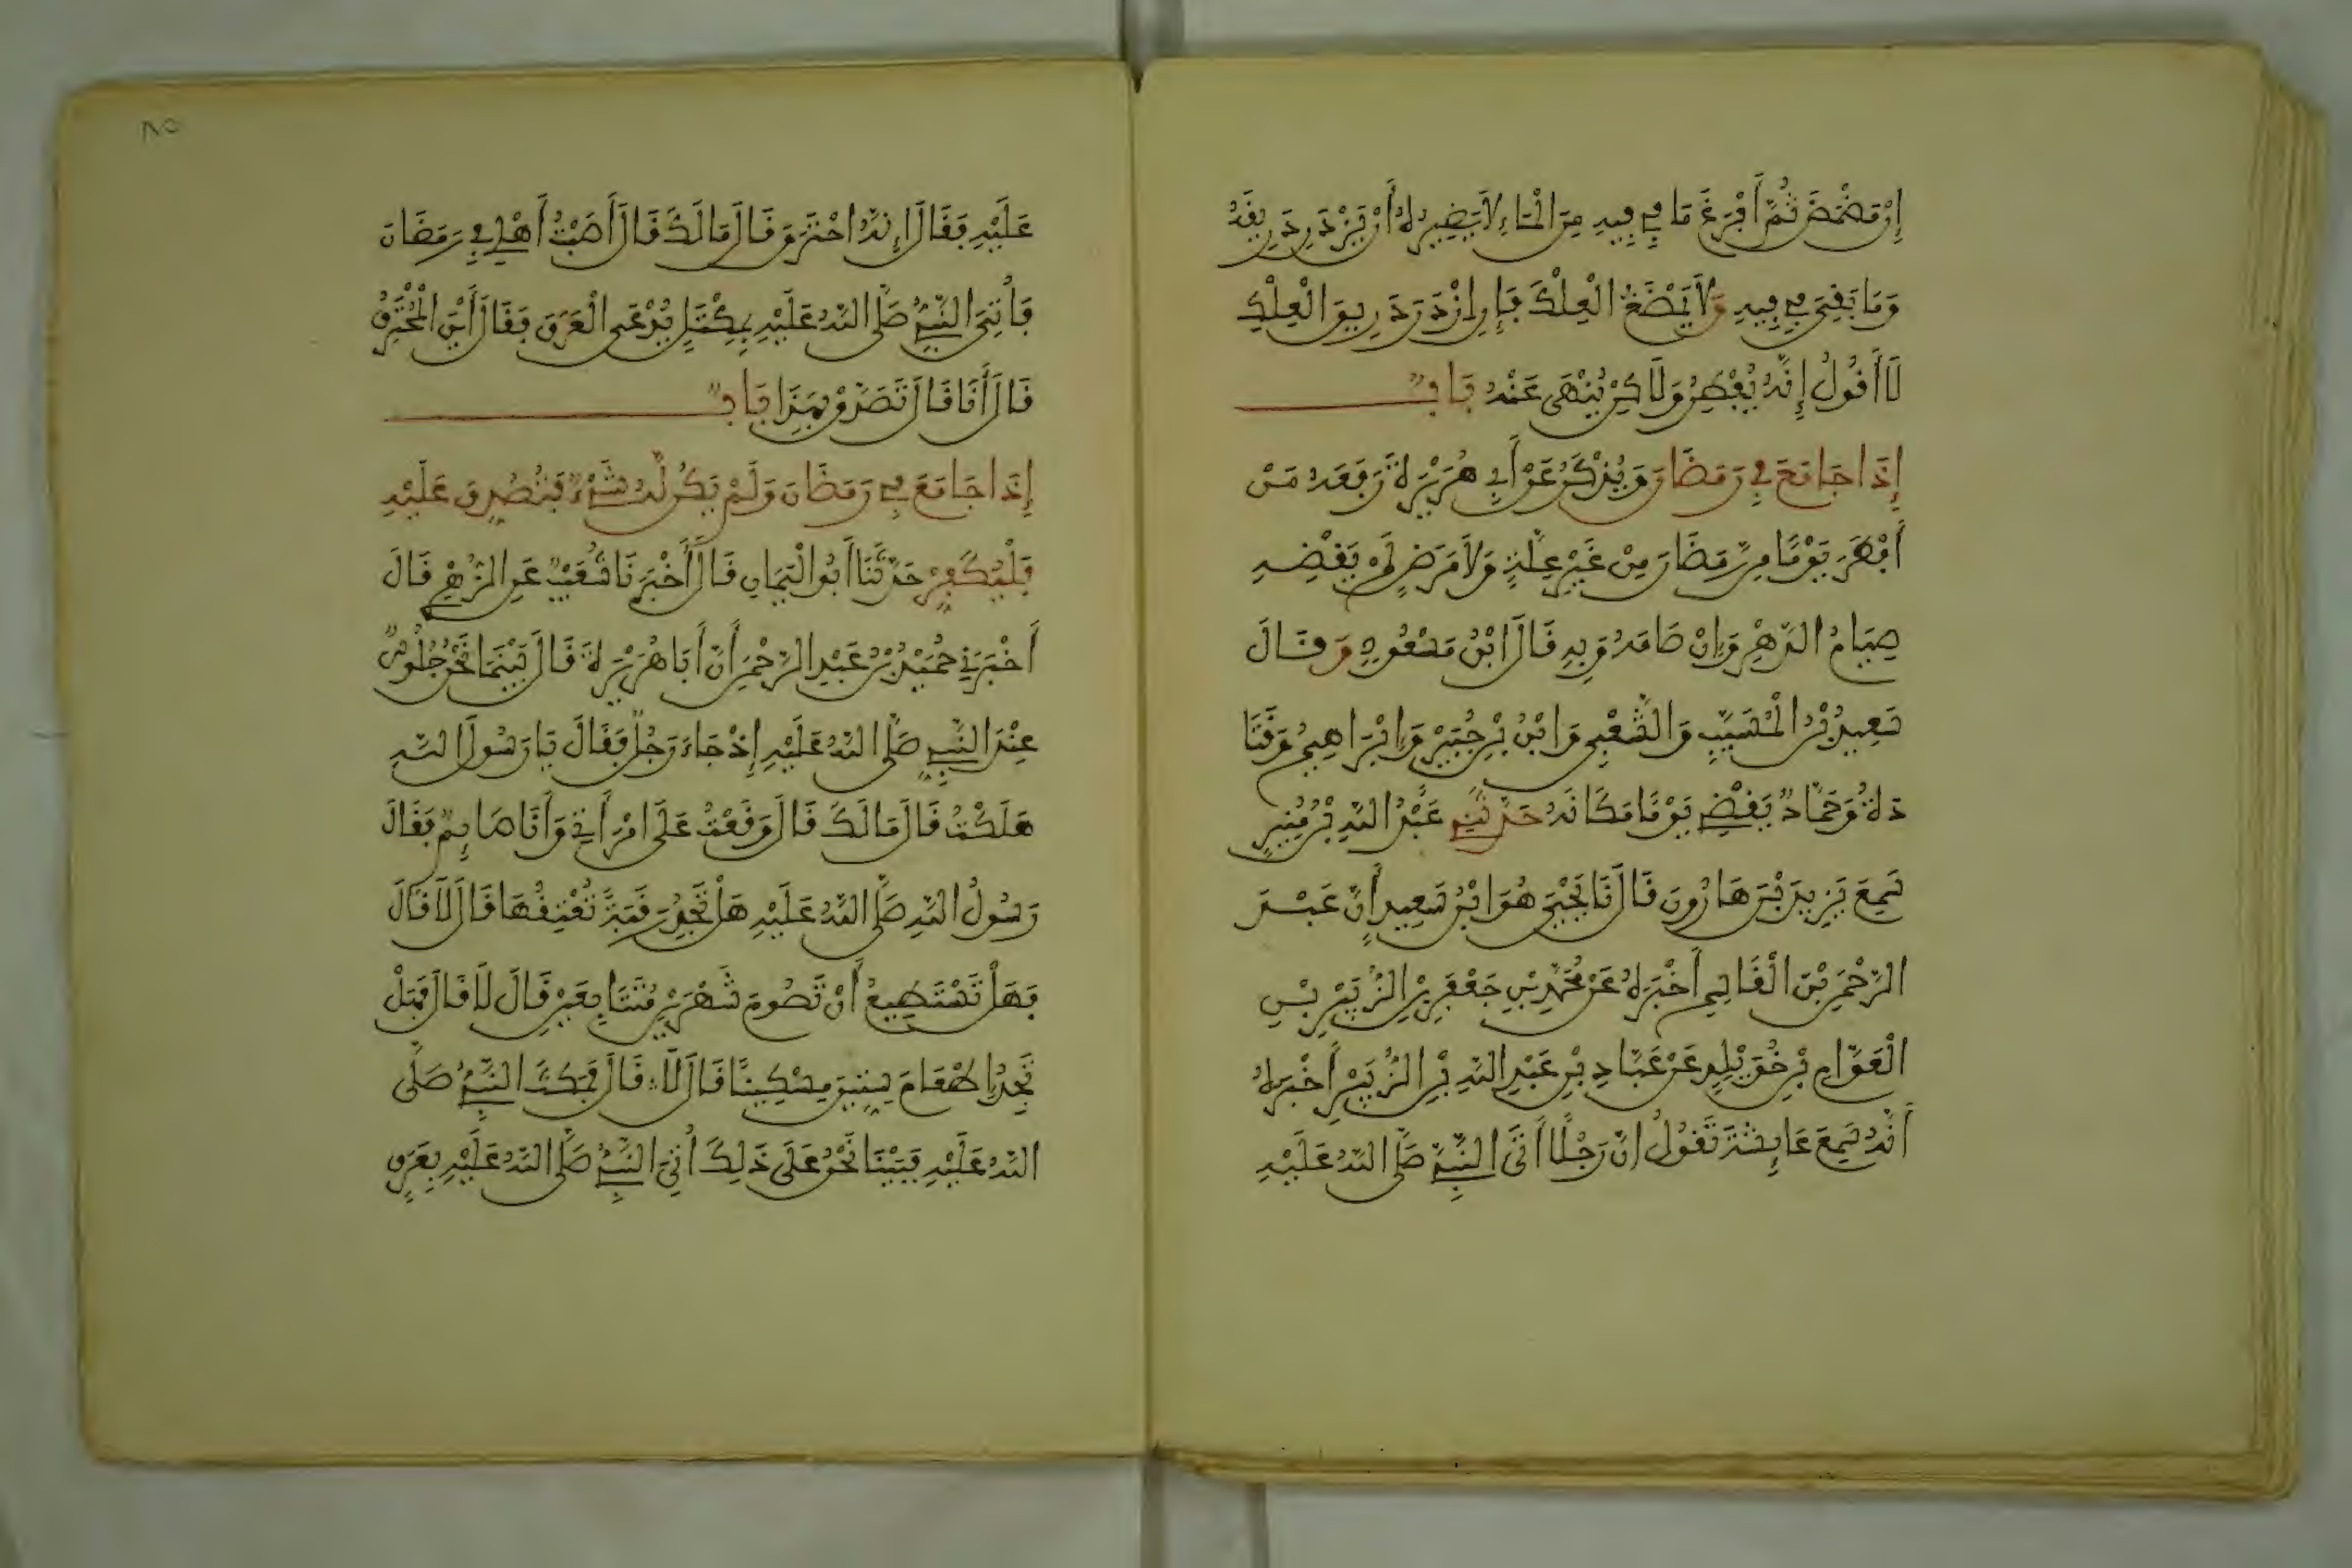 إِن مَضْمَضَ ثُمَّ أَفْرَغَ مَا فِي فِيهِ مِنَ الْمَاءِ لَا يَضِيرُهُ أَنْ يَزْدَرِدَ رِيقَهُ
وَمَا بَقِيَ فِي فِيهِ وَلَا يَمْضَغُ الْعِلْكَ فَإِنِ ازْدَرَدَ رِيقَ الْعِلْكِ
لَا أَقُولُ إِنَّهُ يُفْطِرُ وَلَاكِنْ يُنْهَى عَنْهُ بَابٌ
إِذَا جَامَعَ فِي رَمَضَانَ وَيُذْكَرُ عَنْ أَبِي هُرَيْرَةَ رَفَعَهُ مَنْ
أَفْطَرَ يَوْمًا مِن رَّمَضَانَ مِنْ غَيْرِ عِلَّةٍ وَلَا مَرَضٍ لَمْ يَقْضِهِ
صِيَامُ الدَّهْرِ وَإِنْ صَامَهُ وَبِهِ قَالَ ابْنُ مَسْعُودٍ وَقَالَ
سَعِيدُ بْنُ الْمُسَيِّبِ وَالشَّعْبِيُّ وَابْنُ جُبَيْرٍ وَإِبْرَاهِيمُ وَقَتَا
دَةُ وَحَمَّادٌ يَقْضِي يَوْمًا مَكَانَهُ حَدَّثَنِي عَبْدُ اللهِ بْنُ مُنِيرٍ
سَمِعَ يَزِيدَ بْنَ هَارُونَ قَالَ نَا يَحْيَى هُوَ ابْنُ سَعِيدٍ أَنَّ عَبْدَ
الرَّحْمَنِ بْنَ الْقَاسِمِ أَخْبَرَهُ عَنْ مُحَمَّدِ بْنِ جَعْفَرِ بْنِ الزُّبَيْرِ بْنِ
الْعَوَّامِ بْنِ خُوَيْلِدٍ عَنْ عَبَّادِ بْنِ عَبْدِ اللهِ بْنِ الزُّبَيْرِ أَخْبَرَهُ
أَنَّهُ سَمِعَ عَائِشَةَ تَقُولُ إِنَّ رَجُلًا أَتَى النَّبِيَّ صَلَّى اللهُ عَلَيْهِ
٨٥
عَلَيْهِ فَقَالَ إِنَّهُ احْتَرَقَ قَالَ مَا لَكَ قَالَ أَصَبْتُ أَهْلِي فِي رَمَضَانَ
فَأُتِيَ النَّبِيُّ صَلَّى اللهُ عَلَيْهِ بِمِكْتَلٍ يُدْعَى الْعَرَقَ فَقَالَ أَيْنَ الْمُحْتَرِقُ
قَالَ أَنَا قَالَ تَصَدَّقْ بِهَذَا بَابٌ
إِذَا جَامَعَ فِي رَمَضَانَ وَلَمْ يَكُن لَّهُ شَيْءٌ فَتُصُدِّقَ عَلَيْهِ
فَلْيُكَفِّرْ حَدَّثَنَا أَبُو الْيَمَانِ قَالَ أَخْبَرَنَا شُعَيْبٌ عَنِ الزُّهْرِيِّ قَالَ
أَخْبَرَنِي حُمَيْدُ بْنُ عَبْدِ الرَّحْمَنِ أَنَّ أَبَا هُرَيْرَةَ قَالَ بَيْنَمَا نَحْنُ جُلُوسٌ
عِنْدَ النَّبِيِّ صَلَّى اللهُ عَلَيْهِ إِذْ جَاءَ رَجُلٌ فَقَالَ يَا رَسُولَ اللهِ
هَلَكْتُ قَالَ مَا لَكَ قَالَ وَقَعْتُ عَلَى امْرَأَتِي وَأَنَا صَائِمٌ فَقَالَ
رَسُولُ اللهِ صَلَّى اللهُ عَلَيْهِ هَلْ تَجِدُ رَقَبَةً تُعْتِقُهَا قَالَ لَا قَالَ
فَهَلْ تَسْتَطِيعُ أَنْ تَصُومَ شَهْرَيْنِ مُتَتَابِعَيْنِ قَالَ لَا قَالَ فَهَلْ
تَجِدُ إِطْعَامَ سِتِّينَ مِسْكِينًا قَالَ لَا قَالَ فَمَكَثَ النَّبِيُّ صَلَّى
اللهُ عَلَيْهِ فَبَيْنَا نَحْنُ عَلَى ذَلِكَ أُتِيَ النَّبِيُّ صَلَّى اللهُ عَلَيْهِ بِعَرَقٍ